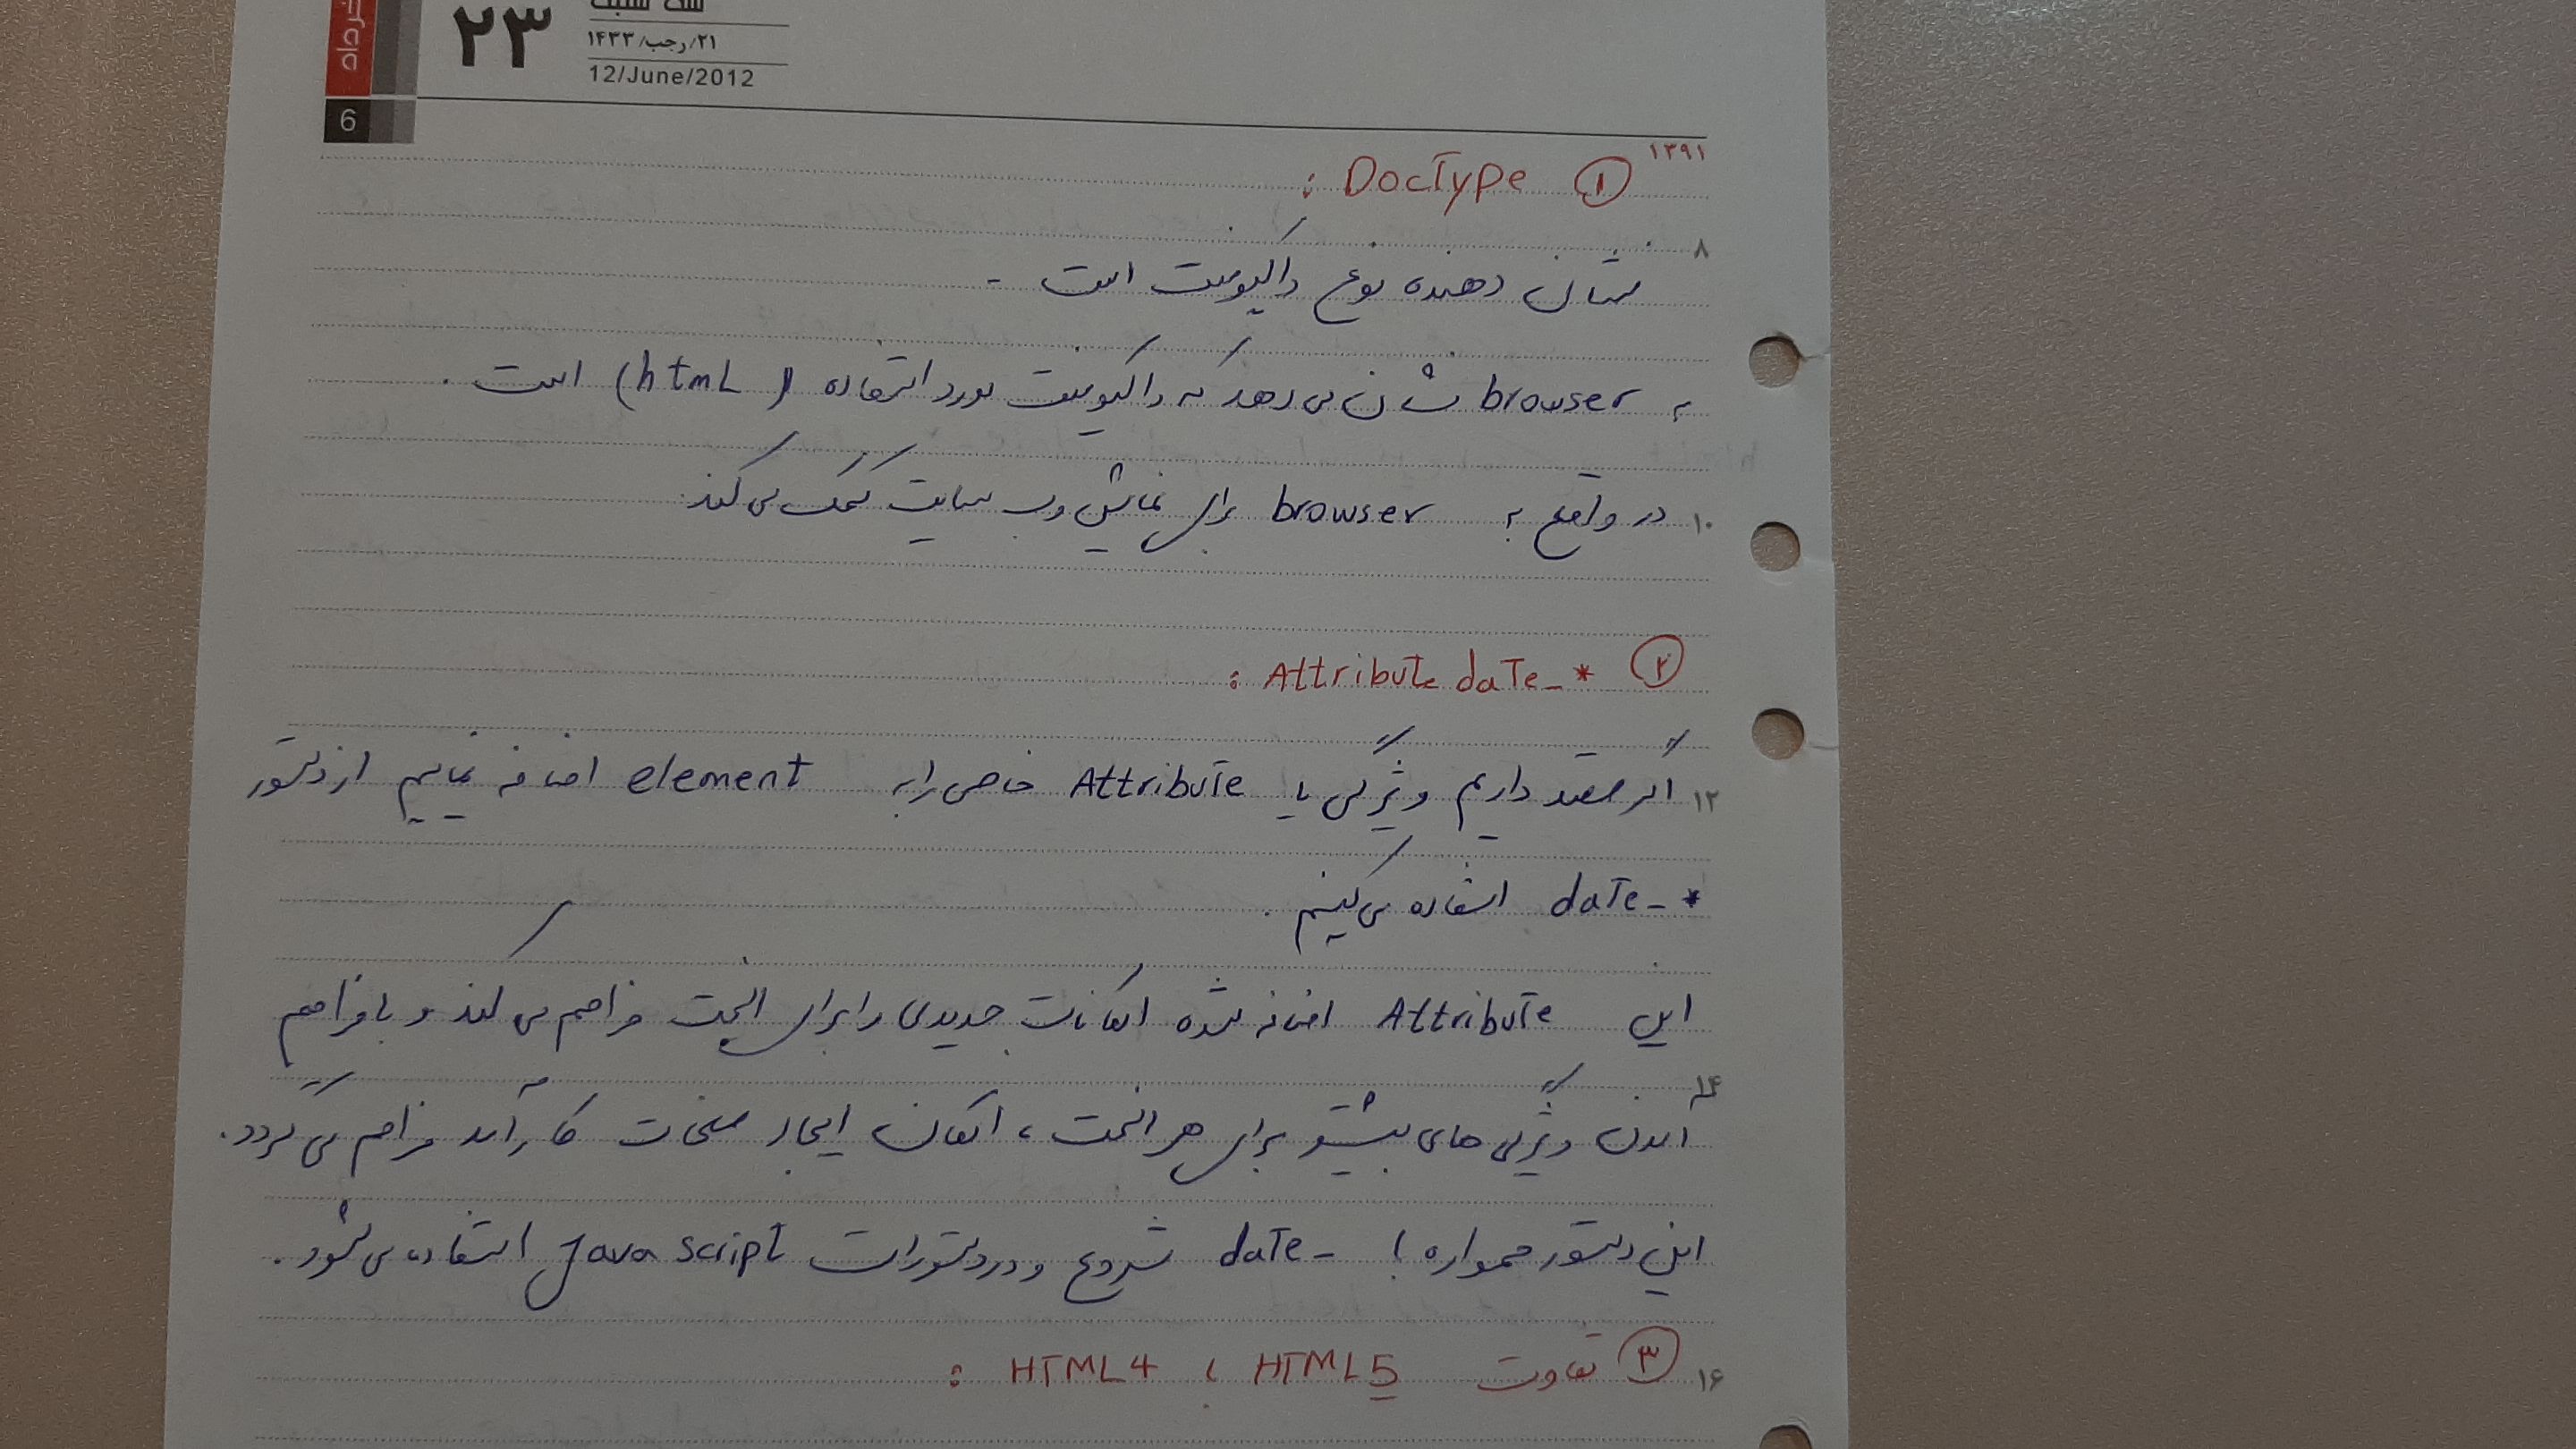 خرداد
۲۳
سه شنبه
۲۱/رجب/۱۴۳۳
12/June/2012
6
۱۳۹۱
① DocType :
۸
نشان دهنده نوع داکیومنت است .
به browser نشان می دهد که داکیومنت مورد استفاده (html) است .
۱۰ در واقع به browser برای نمایش وب سایت کمک می کند .
② Attribute date_* :
۱۲ اگر قصد داریم ویژگی یا Attribute خاصی را به element اضافه نماییم از دستور
date_* استفاده می کنیم .
این Attribute اضافه شده امکانات جدیدی را برای المنت فراهم می کند و با فراهم
۱۴
آمدن ویژگی های بیشتر برای هر المنت ، امکان ایجاد صفحات کارآمد فراهم می گردد .
این دستور همواره با date_ شروع و در دستورات Java script استفاده می شود .
۱۶ ③ تفاوت HTML5 با HTML4 :